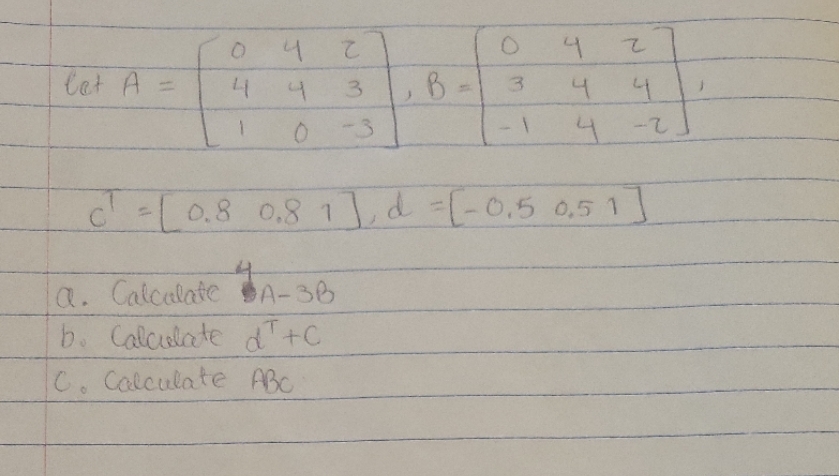 0 4 2 0 4 2
let A = 4 4 3 , B = 3 4 4 ,
1 0 -3 -1 4 -2
c^T = [ 0.8 0.8 1 ], d = [-0.5 0.5 1 ]
a. Calculate 4A-3B
b. Calculate d^T+C
C. Calculate ABC